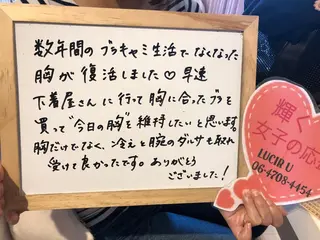 数年間のブラキャミ生活でなくなった
胸が復活しました♡早速
下着屋さんに行って胸に合ったブラを
買って"今日の胸"を維持したいと思います。
胸だけでなく、冷えと腕のダルサも取れ
受けて良かったです。ありがとう
ございました！
輝く
女子の応
LUCIR U
06-4708-4454